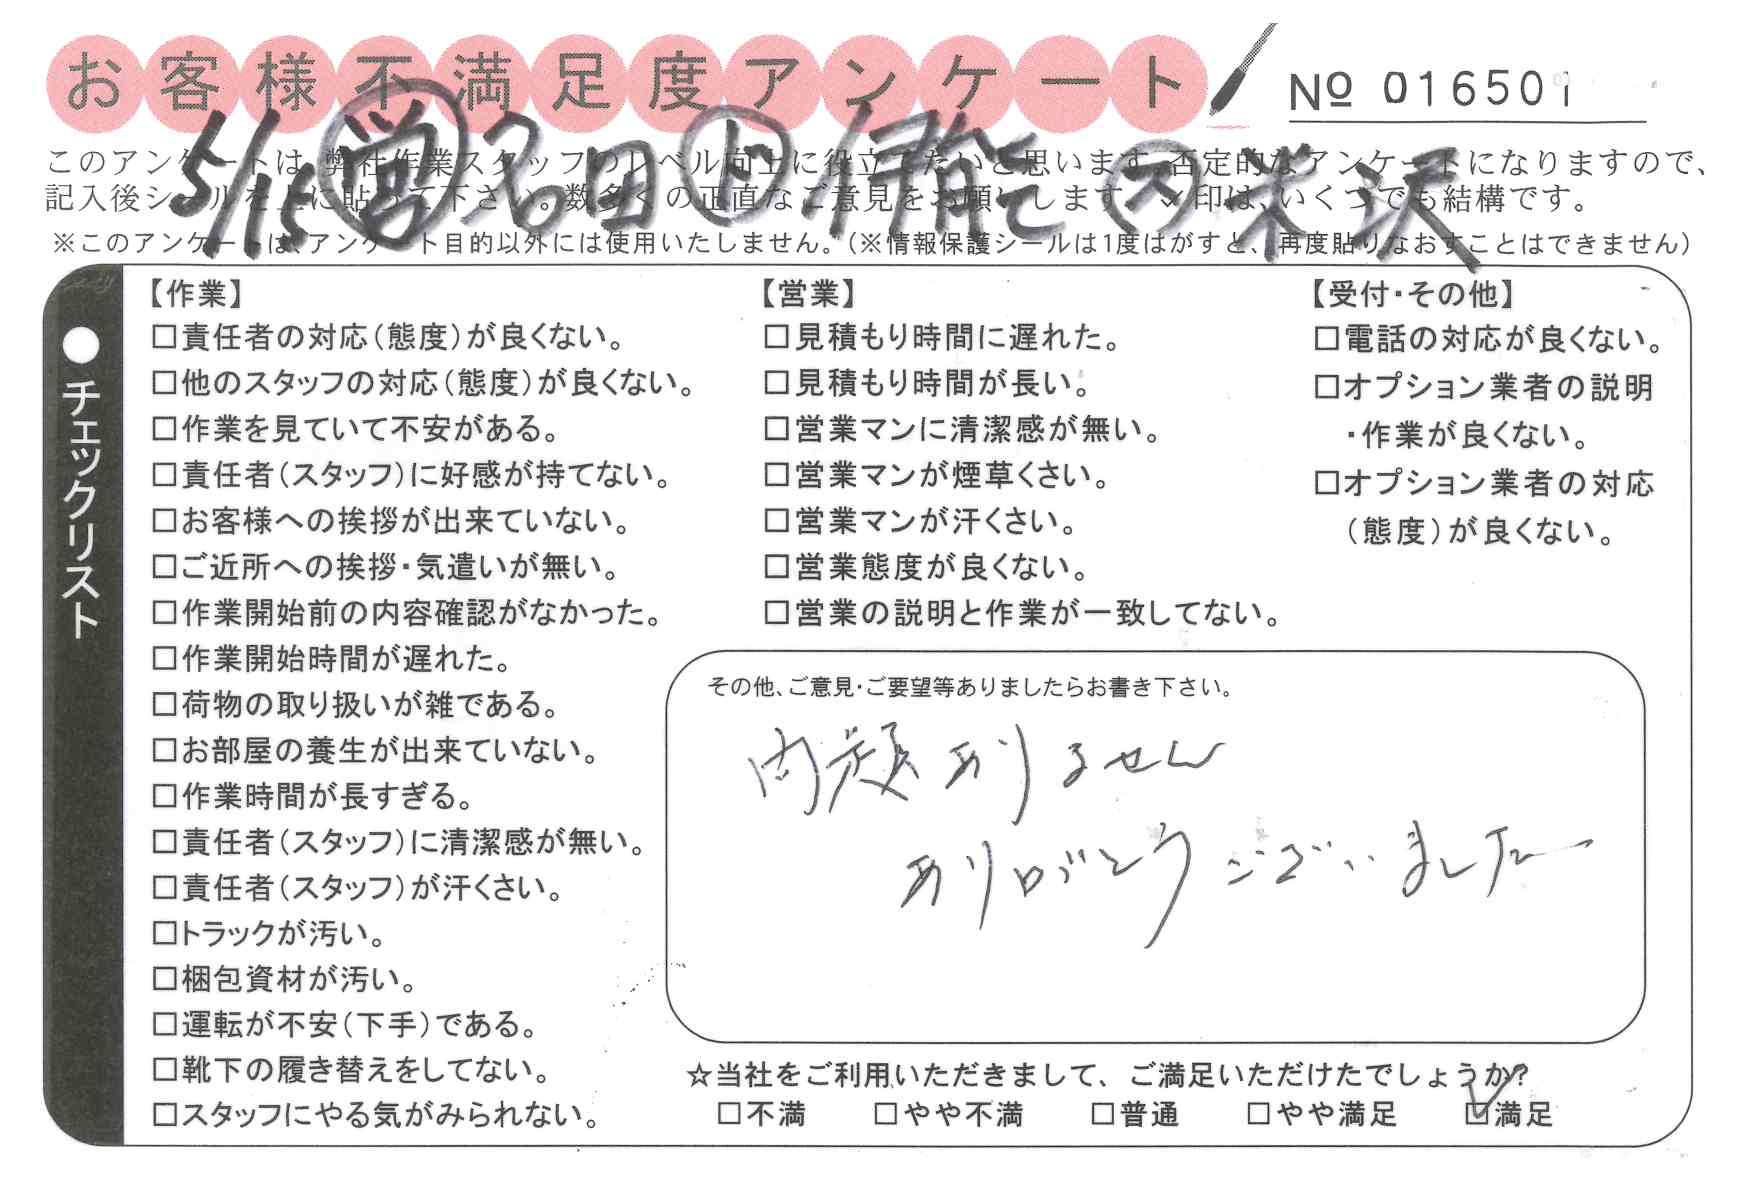 お客様不満足度アンケート
№ 016501
5/15 営 ド 大 米沢
このアンケートは、弊社作業スタッフのレベル向上に役立てたいと思います。否定的なアンケートになりますので、
記入後シールを上に貼って下さい。数多くの正直なご意見をお願いします。✓印は、いくつでも結構です。
※このアンケートは、アンケート目的以外には使用いたしません。(※情報保護シールは1度はがすと、再度貼りなおすことはできません)
●チェックリスト
【作業】
□責任者の対応(態度)が良くない。
□他のスタッフの対応(態度)が良くない。
□作業を見ていて不安がある。
□責任者(スタッフ)に好感が持てない。
□お客様への挨拶が出来ていない。
□ご近所への挨拶・気遣いが無い。
□作業開始前の内容確認がなかった。
□作業開始時間が遅れた。
□荷物の取り扱いが雑である。
□お部屋の養生が出来ていない。
□作業時間が長すぎる。
□責任者(スタッフ)に清潔感が無い。
□責任者(スタッフ)が汗くさい。
□トラックが汚い。
□梱包資材が汚い。
□運転が不安(下手)である。
□靴下の履き替えをしてない。
□スタッフにやる気がみられない。
【営業】
□見積もり時間に遅れた。
□見積もり時間が長い。
□営業マンに清潔感が無い。
□営業マンが煙草くさい。
□営業マンが汗くさい。
□営業態度が良くない。
□営業の説明と作業が一致してない。
【受付・その他】
□電話の対応が良くない。
□オプション業者の説明
・作業が良くない。
□オプション業者の対応
(態度)が良くない。
その他、ご意見・ご要望等ありましたらお書き下さい。
問題ありません
ありがとうございました
☆当社をご利用いただきまして、ご満足いただけたでしょうか?
□不満 □やや不満 □普通 □やや満足 ☑満足